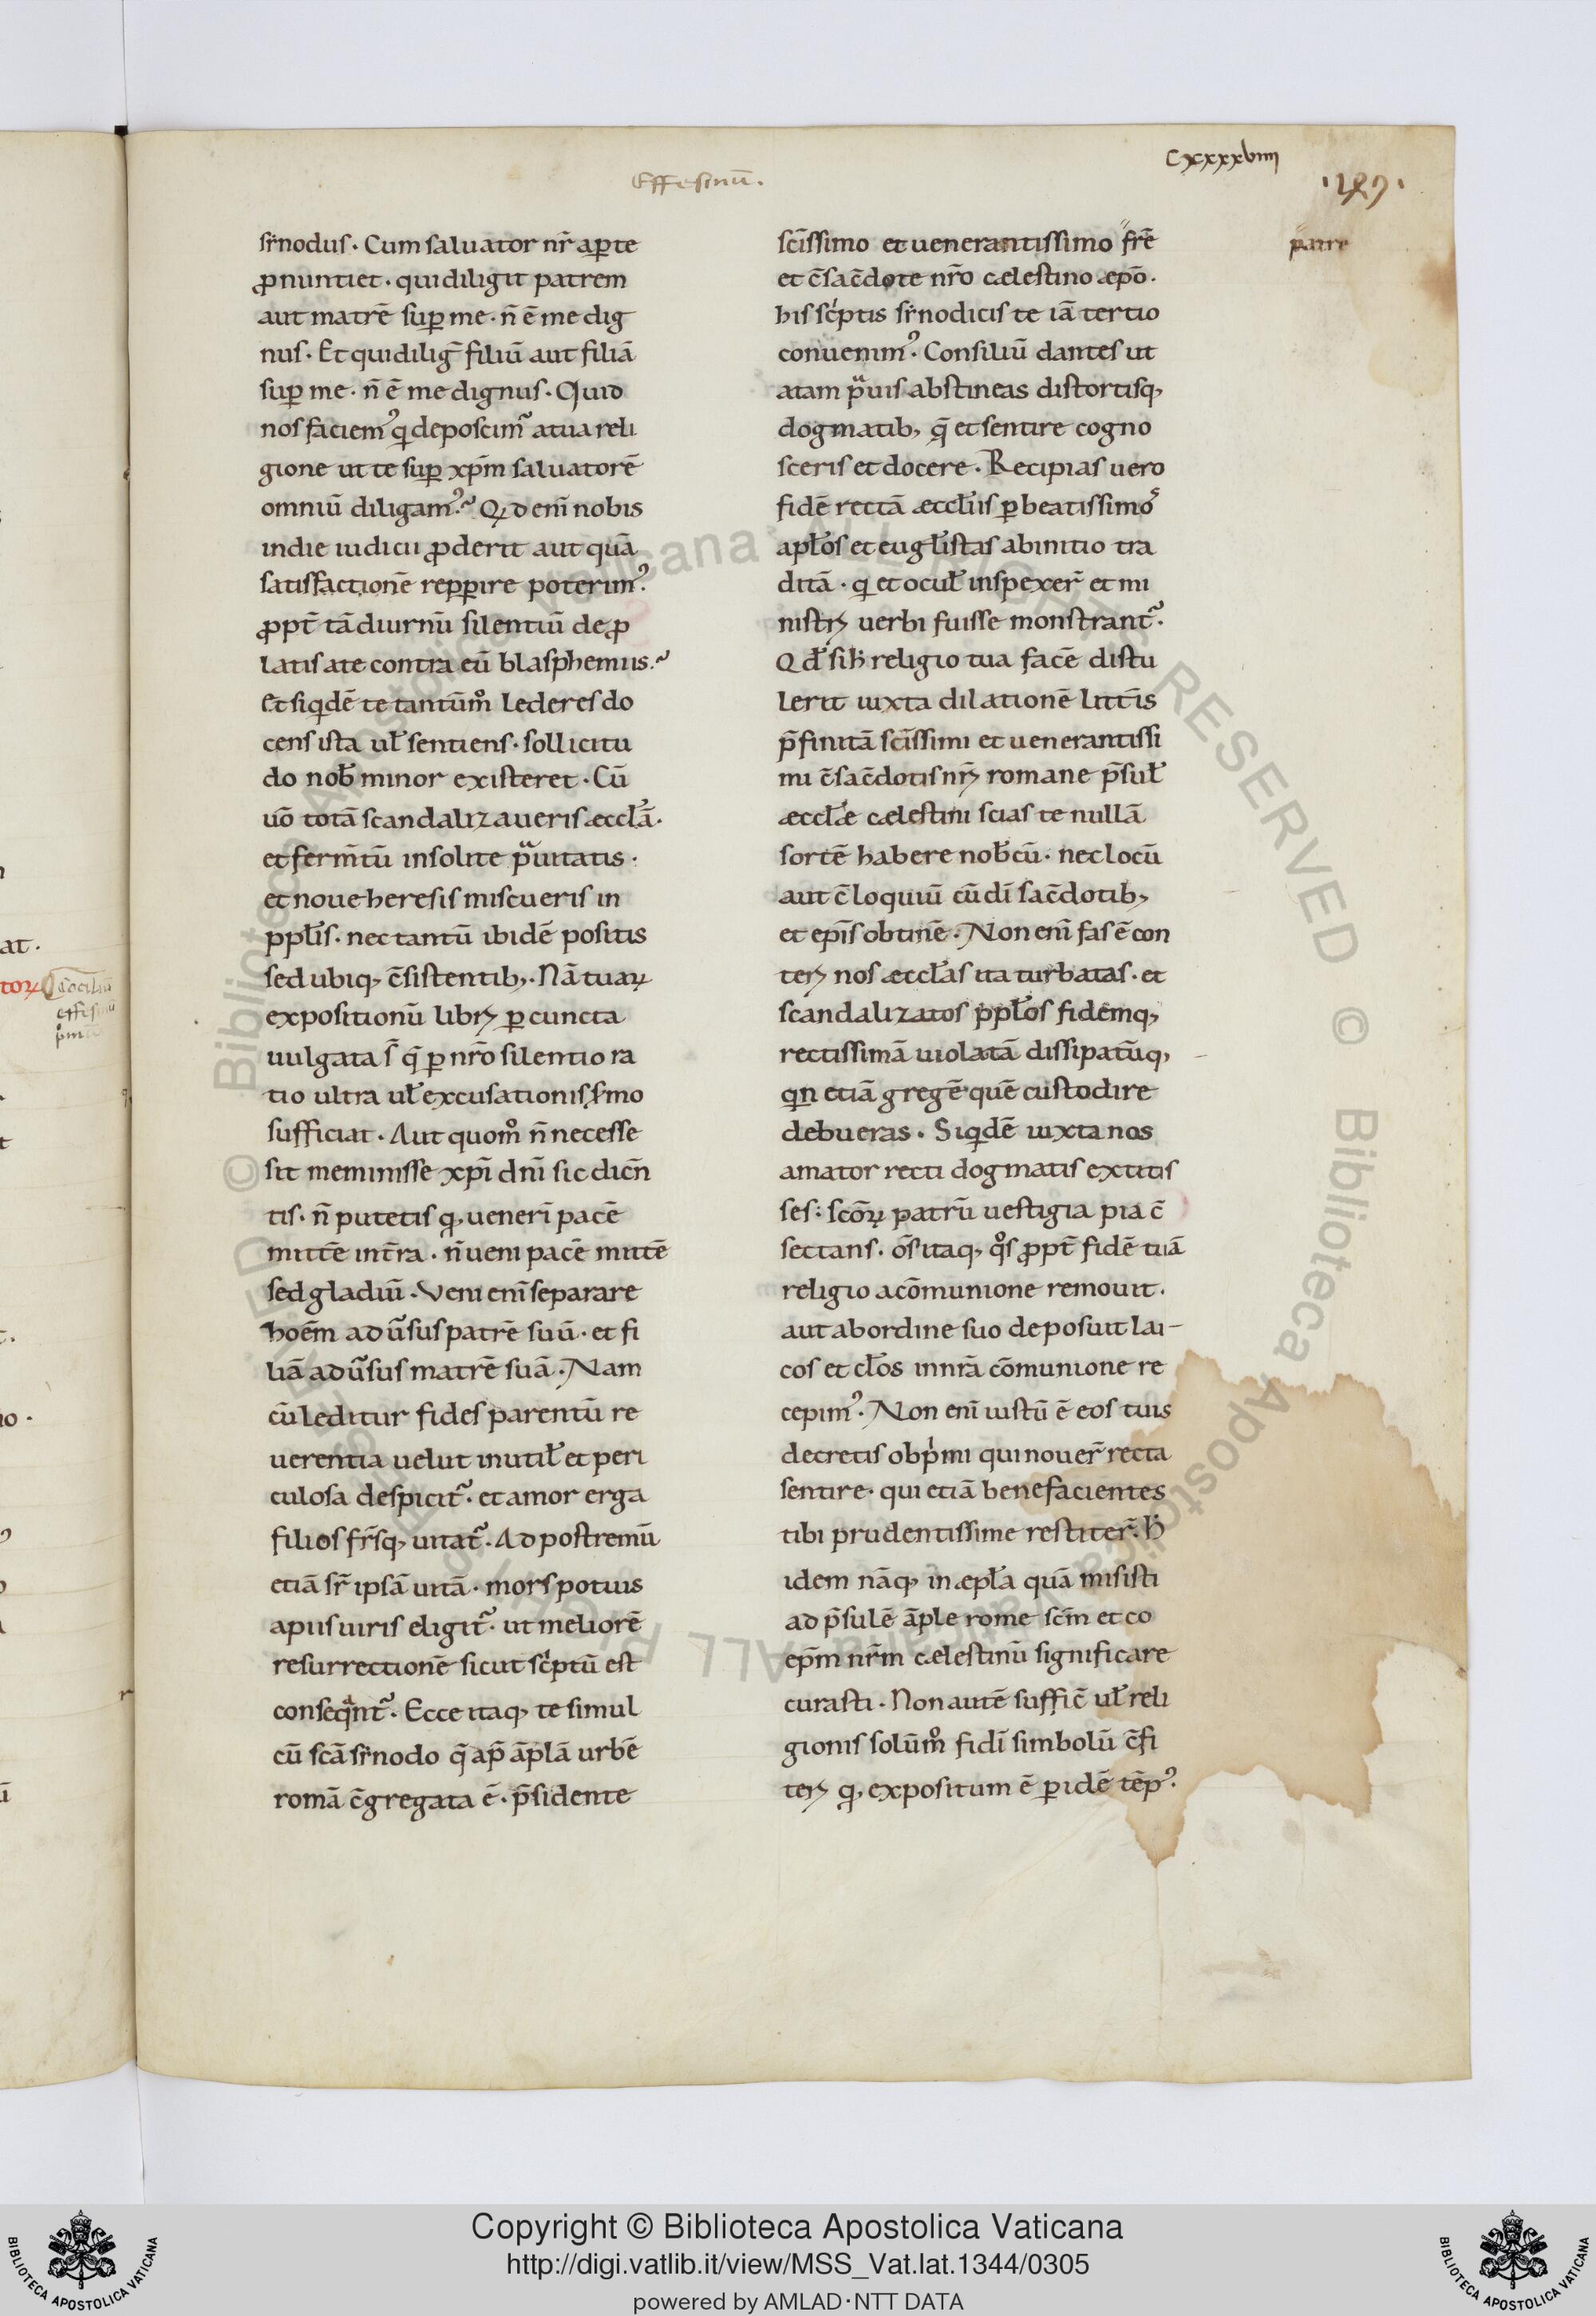 Effesinū.
cxxxxbiiii
·149·
sẏnodus· Cum saluator nr̄ aꝑte
ꝓnuntiet· qui diligit patrem
aut matrē suꝑ me· n̄ ē me dig
nus· Et qui diliḡ filiū aut filiā
suꝑ me· n̄ ē me dignus· Quid
nos faciemꝰ q̇ deposcim᷑ a tua reli
gione ut te suꝑ xp̄m saluatorē
omniū diligamꝰ? Qd̄ eni̅ nobis
in die iudicii ꝓderit aut quā
satisfactionē reꝑꝑire poterimꝰ·
ꝓpt̄ tā diurnū silentiū de ꝓ
latis a te contra eū blasphemiis?
Et siqdē te tantūm̊ lederes do
cens ista ul̄ sentiens· sollicitu
do nob̄ minor existeret· Cū
uō totā scandalizaueris æccl̄ā·
et ferm̄tū insolite pͣuitatis·
et noue heresis miscueris in
ppl̄is· nec tantū ibidē positis
sed ubiq; c̄sistentib;· Nā tuaꝝ
expositionū libꝝ ꝑ cuncta
uulgata s̄ q̄ ꝑ nr̄o silentio ra
tio ultra ul̄ excusationis s̄mo
sufficiat· Aut quom̊ n̄ necesse
sit meminisse xp̄i dn̄i sic dicn̄
tis· n̄ putetis q; ueneri̅ pacē
mittē in t̄ra· n̄ ueni pacē mittē
sed gladiū· Veni eni̅ separare
hoēm adūsus patrē suū· et fi
liā adūsus matrē suā· Nam
cū leditur fides parentū re
uerentia uelut inutil̄ et peri
culosa despicit᷑· et amor erga
filios fr̄sq; uitat᷑· Ad postremū
etiā sr̄ ipsā uitā· mors potuis
apiis uiris eligit᷑· ut meliorē
resurrectionē sicut sċptū est
conseqͣnt᷑· Ecce itaq; te simul
cū scā sẏnodo q̄ ap̄ āplā urbē
romā c̄gregata ē· p̄sidente
scīssimo et uenerantissimo frē
et c̄sac̄dote nr̄o cælestino æpō·
his sċptis sẏnodicis te iā tertio
conuenimꝰ· Consiliū dantes ut
a tam pͣuis abstineas distortisq;
dogmatib; q̄ et sentire cogno
sceris et docere· Recipias uero
fidē rectā æccl̄iis ꝑ beatissimos
apl̄os et eugl̄istas ab initio tra
ditā· q̇ et ocul̄ inspexer̄ et mi
nistꝝ uerbi fuisse monstrant᷑·
Qd̄ si ħ religio tua facē distu
lerit iuxta dilationē litt̄is
p̄finitā scīssimi et uenerantissi
mi c̄sac̄dotis nr̄ꝝ romane p̄sul̄
æccl̄æ cælestini scias te nullā
sortē habere nob̄cū· nec locū
aut c̄loquiū cū dī sac̄dotib;
et epīs obtinē· Non eni̅ fas ē con
teꝝ nos æccl̄as ita turbatas· et
scandalizatos ppl̄os fidēmq;
rectissimā uiolatā dissipatūq;
qn etiā gregē quē custodire
debueras· Siqdē iuxta nos
amator recti dogmatis extitis
ses: scōꝝ patrū uestigia pia c̄
sectans· ōs itaq; q̊s ꝓpt̄ fidē tuā
religio a cōmunione remouit·
aut ab ordine suo deposuit lai-
cos et cl̄os in nrā cōmunione re
cepimꝰ· Non eni̅ iustū ē eos tuis
decretis obp̍mi qui nouer̄ recta
sentire· qui etiā benefacientes
tibi prudentissime restiter̄· ħ
idem nāq; in æpl̄a quā misisti
ad p̄sulē āple rome scm̄ et co
ep̄m nr̄m cælestinū significare
curasti· Non autē suffic̄ ul̄ reli
gionis solūm̊ fidi̅ simbolū c̄fi
teꝝ q; expositum ē ꝑ idē tēpꝰ·
patre
at·
toꝝ
Cōciliū
effesinū
p̊mū
io·
Copyright © Biblioteca Apostolica Vaticana
http://digi.vatlib.it/view/MSS_Vat.lat.1344/0305
powered by AMLAD·NTT DATA
BIBLIOTECA APOSTOLICA VATICANA
BIBLIOTECA APOSTOLICA VATICANA
© Biblioteca Apostolica Vaticana ALL RIGHTS RESERVED © Biblioteca Apostolica Vaticana ALL RIGHTS RESERVED